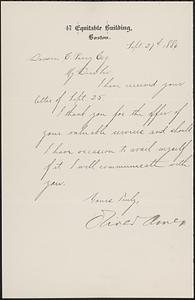 47 Equitable Building,
Boston.
Sept. 27th 188
C. King Esq
My Dear Sir
I have received your
letter of Sept. 25.
I thank you for the offer of
your valuable services and should
I have occasion to avail myself
of it I will communicate with
you.
Yours truly,
Oliver Ames